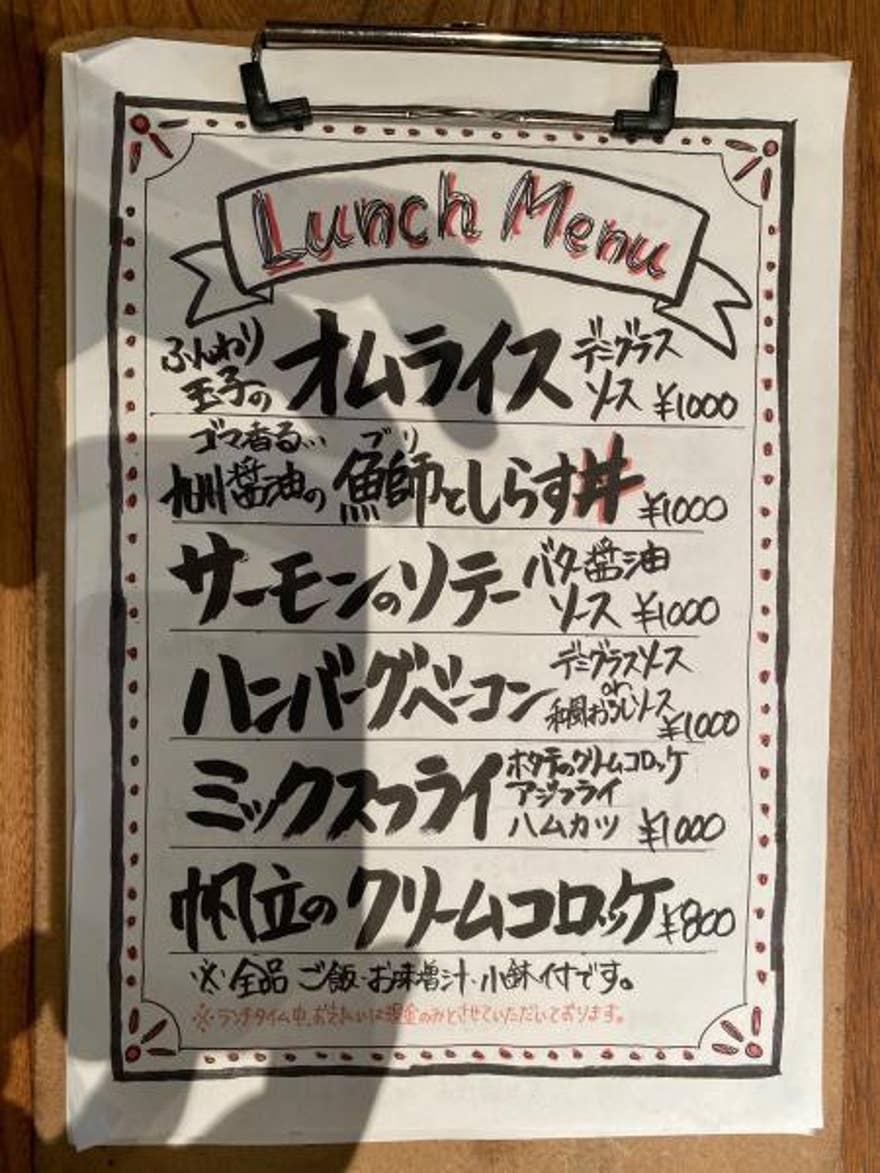 Lunch Menu
ふんわり
玉子の オムライス デミグラス
ソース ¥1000
ゴマ香る… ブリ
九州醤油の 鰤としらす丼 ¥1000
サーモンのソテー バター醤油
ソース ¥1000
ハンバーグベーコン デミグラスソース
or
和風おろしソース ¥1000
ミックスフライ ホタテのクリームコロッケ
アジフライ
ハムカツ ¥1000
帆立のクリームコロッケ ¥800
※全品 ご飯・お味増汁・小鉢付です。
※ランチタイム中、お支払いは現金のみとさせていただいております。